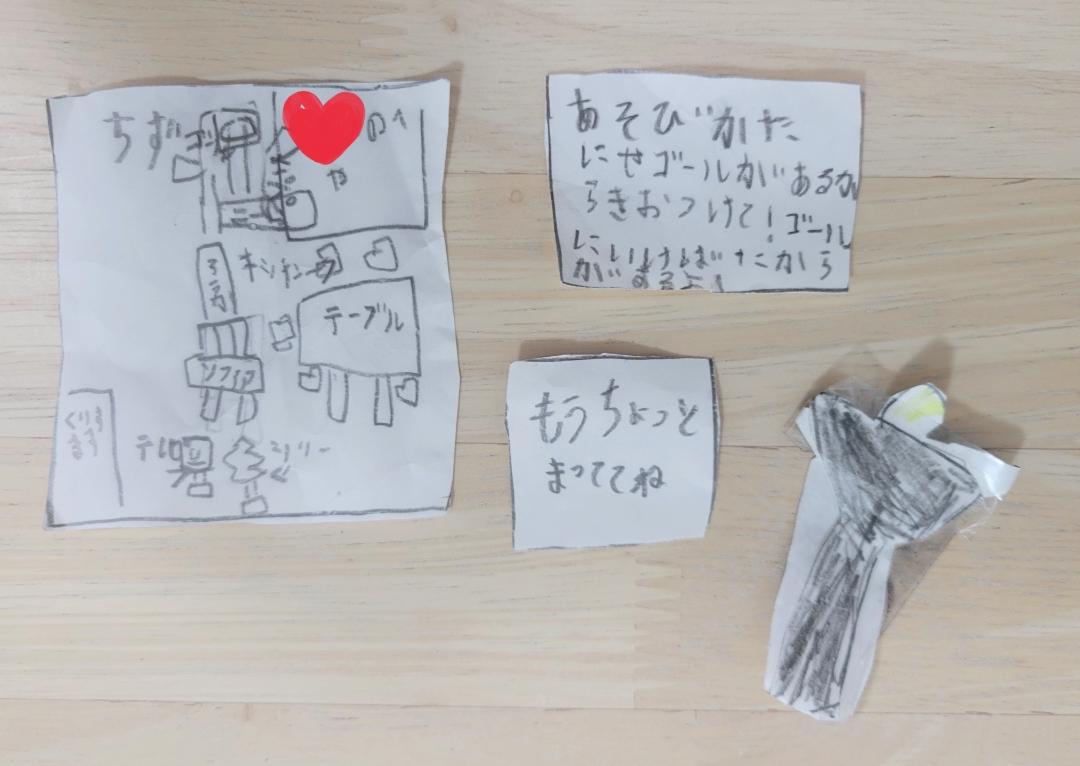 ちず
のへ
や
キッチン
テーブル
ソファ
テレビ
ツリー
あそびかた
にせゴールがあるか
らきおつけて!ゴール
にいけばたから
があるよ!
もうちょっと
まっててね